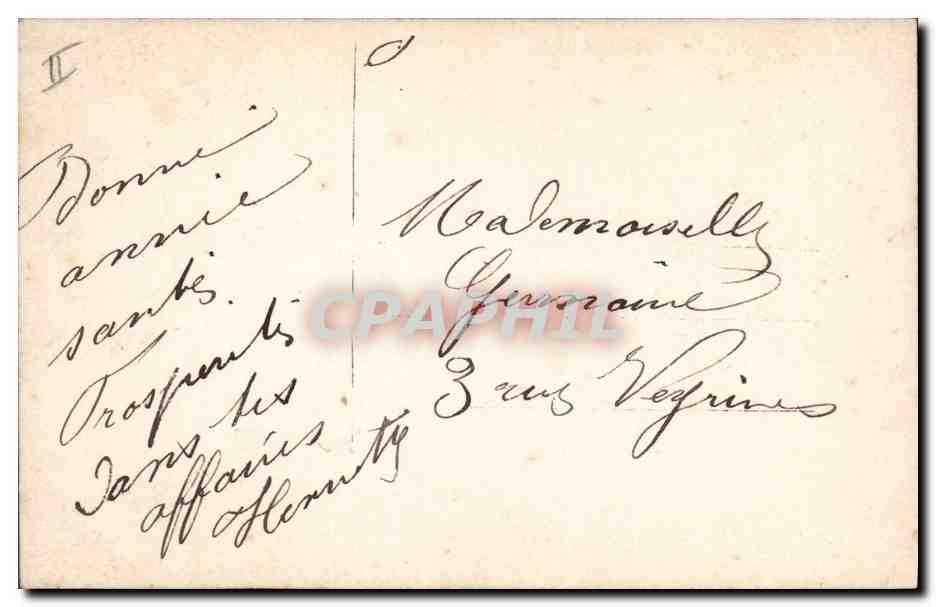 II
Bonne
année
santés.
Prosperités
dans tes
affaires
Mademoiselle
Germaine
3 rue Veyrines
CPAPHIL